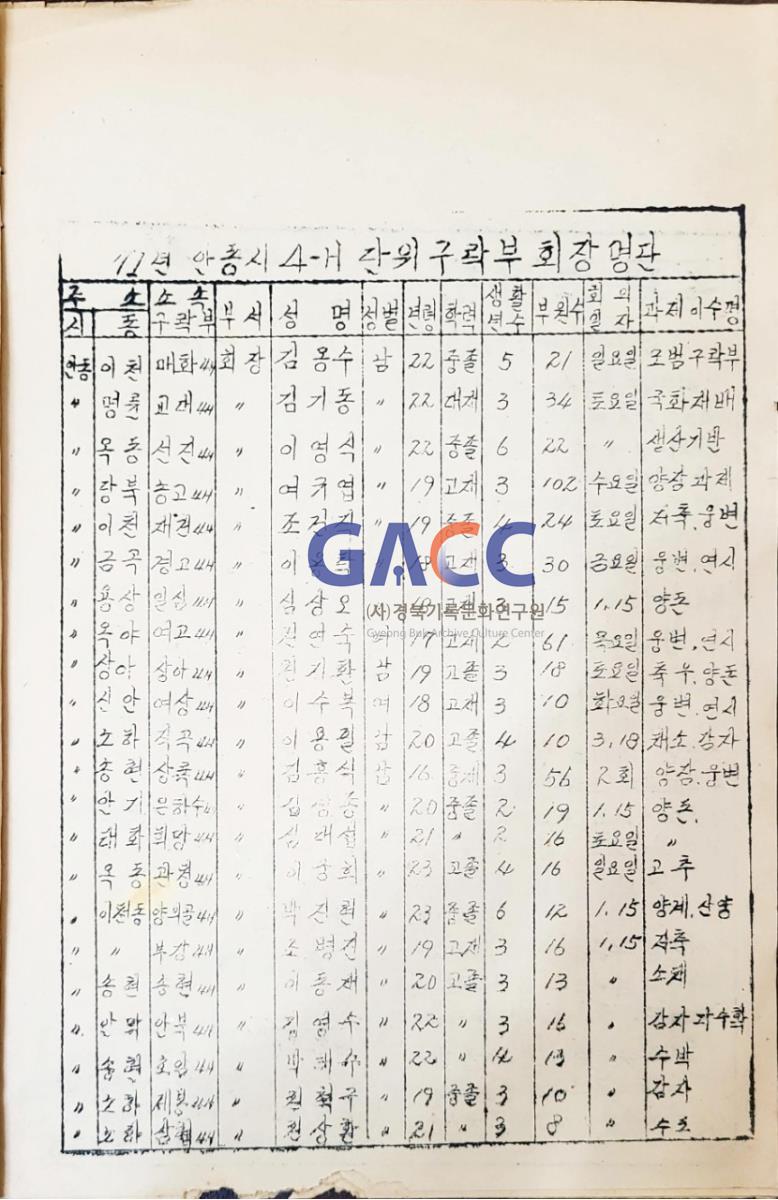 년 안동시 4-H 단위구락부 회장명단
주소 소속 부서 성명 성별 년령 학력 생활년수 부원수 회의일자 과제이수평
시 동 구락부
안동 이천 매화4H 회장 김용수 남 22 중졸 5 21 일요일 모범구락부
〃 명륜 교대4H 〃 김기동 〃 22 대재 3 34 토요일 국화재배
〃 옥동 선진4H 〃 이영식 〃 22 중졸 6 22 〃 생산기반
〃 당북 농고4H 〃 여규엽 〃 19 고재 3 102 수요일 양잠과제
〃 이천 재건4H 〃 조진 〃 19 중졸 4 24 토요일 저축.웅변
〃 금곡 경고4H 〃 이 〃 18 고재 3 30 금요일 웅변.연시
〃 용상 일심4H 〃 심상오 〃 19 3 15 1.15 양돈
〃 옥야 여고4H 〃 연숙 여 17 고재 2 61 목요일 웅변.연시
〃 상아 상아4H 〃 권기환 남 19 고졸 3 18 토요일 축우.양돈
〃 신안 여상4H 〃 이수복 여 18 고재 3 10 화요일 웅변.연시
〃 노하 4H 〃 이용필 남 20 고졸 4 10 3,18 채소.감자
〃 송현 상록4H 〃 김흥식 남 16 중재 3 56 2회 양잠.웅변
〃 안기 은하수4H 〃 김 종 〃 20 중졸 2 19 1.15 양돈.
〃 태화 희망4H 〃 김대섭 〃 21 〃 2 16 토요일 〃
〃 옥동 관경4H 〃 이 희 〃 23 고졸 4 16 일요일 고추
〃 이천동 양의골4H 〃 박진현 〃 23 중졸 6 12 1.15 양계.산양
〃 〃 부강4H 〃 조병건 〃 19 고재 3 16 1,15 저축
〃 송현 송현4H 〃 이동재 〃 20 고졸 3 13 〃 소채
〃 안막 안북4H 〃 김영수 〃 22 〃 3 15 〃 감자다수확
〃 송현 호암4H 〃 박 〃 22 〃 4 13 〃 수박
〃 노하 제봉4H 〃 권혁구 〃 19 중졸 3 10 〃 감자
〃 노하 4H 〃 권상환 〃 21 〃 3 8 〃 수도
GACC
(사)경북기록문화연구원
Gyeong Buk Archive Culture Center